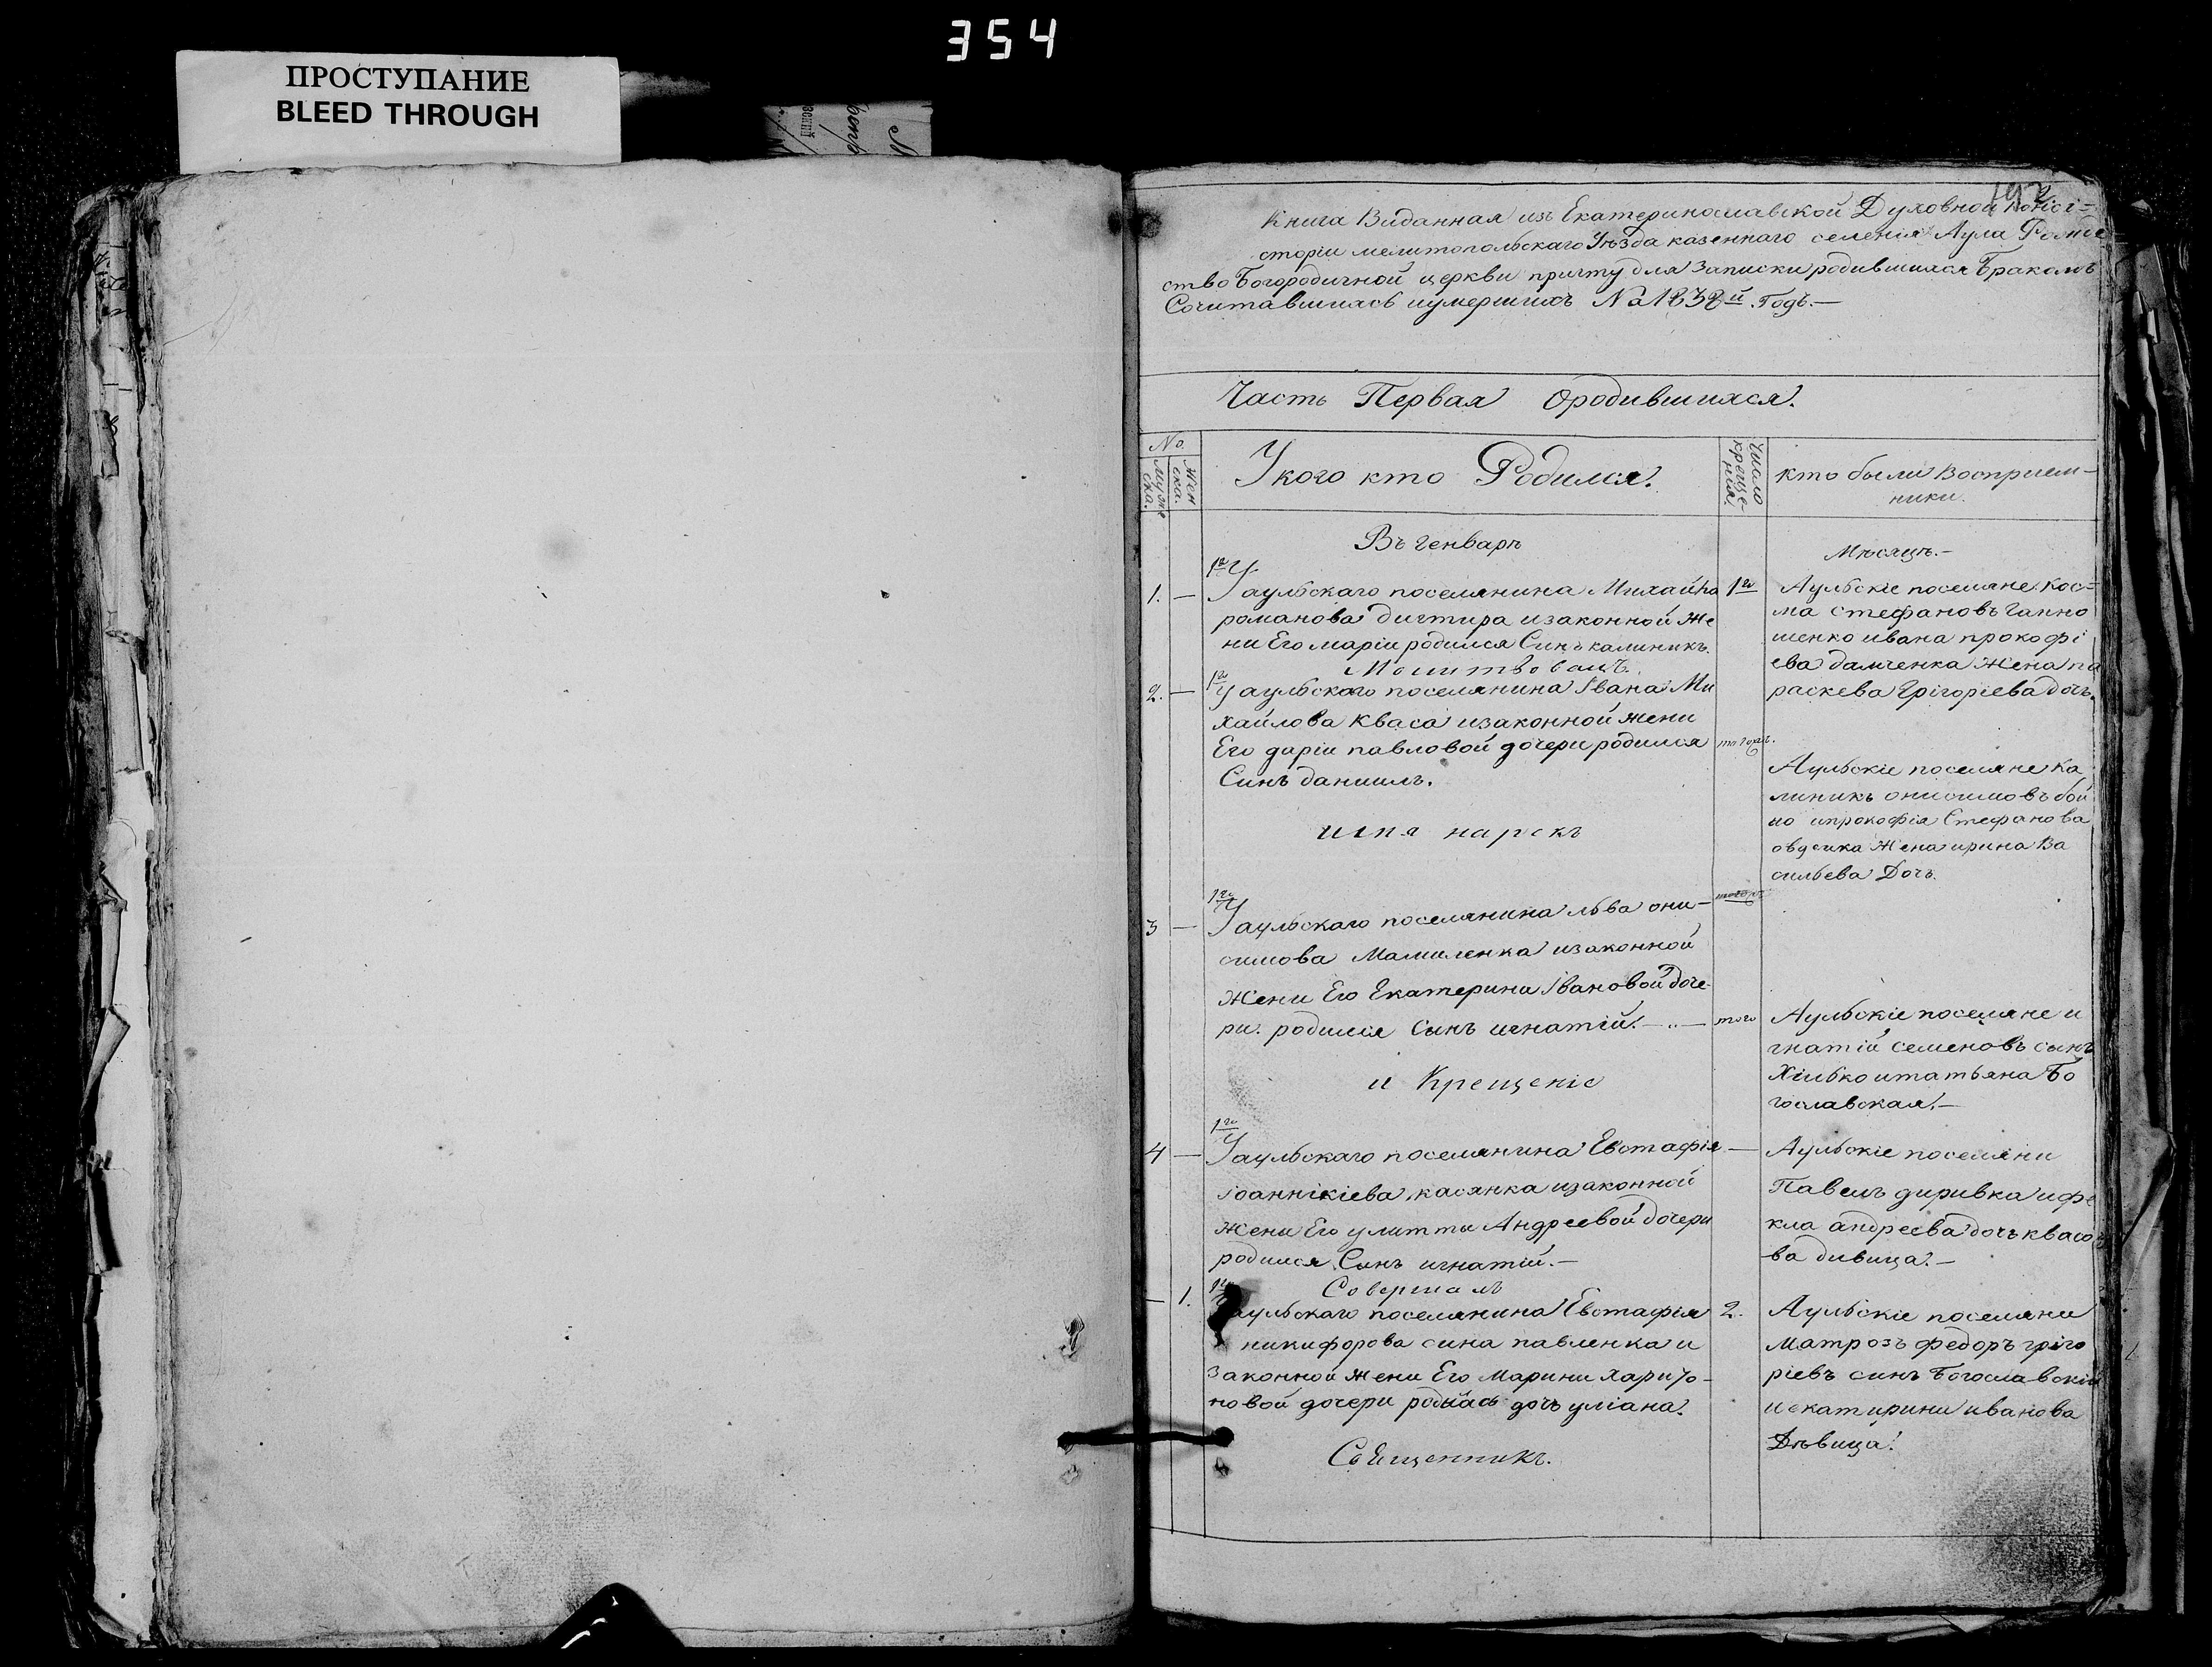 354
ПРОСТУПАНИЕ
BLEED THROUGH
192
Книга Виданная изъ Екатеринославской Духовной консі=
сторіи мелитопольскаго Уезда казеннаго селенія Аула Рожде
ство Богородичной церкви причту для Записки родившихся Бракомъ
Сочитавшихсь иумершихъ На 1838й. Годъ.—
Часть Первая Ородившихся.
No.
Мужеска.
Женска.
Укого кто Родился.
Число крещенія
кто были Восприем-
ники.
Въ Генваре
Месяце.—
1го
1. — У аульскаго поселянина Михайла
романова дигтира изаконной Же
ни Его маріи родился Синъ калиникъ.
1го
Аульскіе поселяне Кос=
ма стефановъ Ганно
шенко ивана прокофі
ева дамченка Жена па
раскева Грігоріева дочь.
Молитвовалъ
1го
2. — У аульскаго поселянина Івана Ми
хайлова Кваса изаконной жени
Его даріи павловой дочери родился
Синъ даниилъ.
тогожъ.
Аульскіе поселяне Ка
линикъ онисимовъ бой
ко ипрокофія Стефанова
овдеика Жена ирина Ва
сильева Дочь.
имя нарекъ
1го
3 — У аульскаго поселянина льва они-
симова Мамиленка изаконной
Жени Его Екатерини Івановой доче
ри. родился Сынъ игнатій.—..—
того
Аульскіе поселяне и
гнатій семеновъ сынъ
Хілько итатьяна Бо
гославская.—
и Крещеніе
1го
4 — У аульскаго поселянина Евстафія —
іоаннікіева касянка изаконной
жени Его улитти Андреевой дочери
родился Синъ игнатій.—
Аульскіе поселяни
Павелъ диривка ифе
кла андреева дочь квасо
ва дивица.—
Совершалъ
1го
— 1. У аульскаго поселянина Евстафія
никифорова сина павленка и
Законной жени Его Марини Харито-
новой дочери родилась дочь уліана.
2.
Аульскіе поселяни
Матрозъ федоръ гріго
ріевъ синъ Богославскій
иекатирини иванова
Девица.
Священникъ.